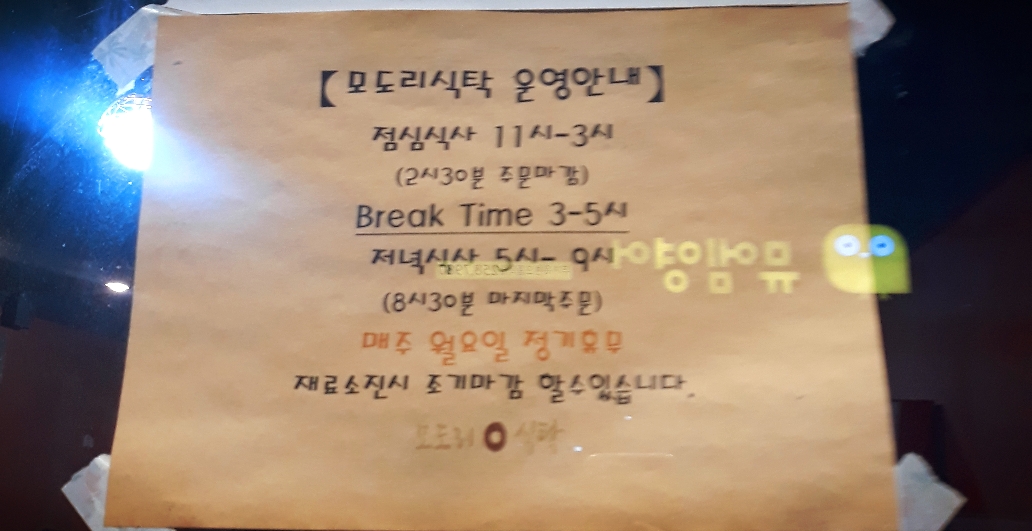 【모도리식탁 운영안내】
점심식사 11시-3시
(2시30분 주문마감)
Break Time 3-5시
저녁식사 5시- 9시
(8시30분 마지막주문)
매주 월요일 정기휴무
재료소진시 조기마감 할수있습니다.
모도리 식탁